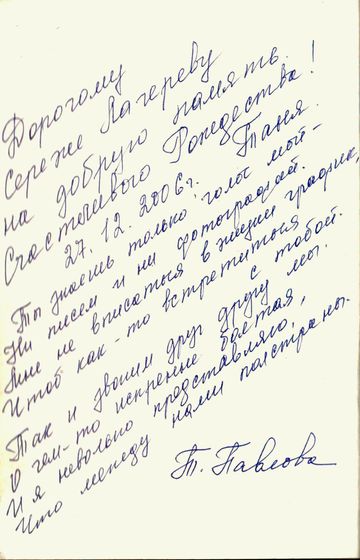 Дорогому
Сереже Лагереву
на добрую память.
Счастливого Рождества!
27. 12. 2006г. Таня.
Ты знаешь только голос мой –
Ни писем и ни фотографий.
Мне не вписаться в жизни график,
Чтоб как-то встретиться с тобой.
Так и звоним друг другу мы.
О чем-то искренне болтая,
И я невольно представляю,
Что между нами полстраны.
Т. Павлова